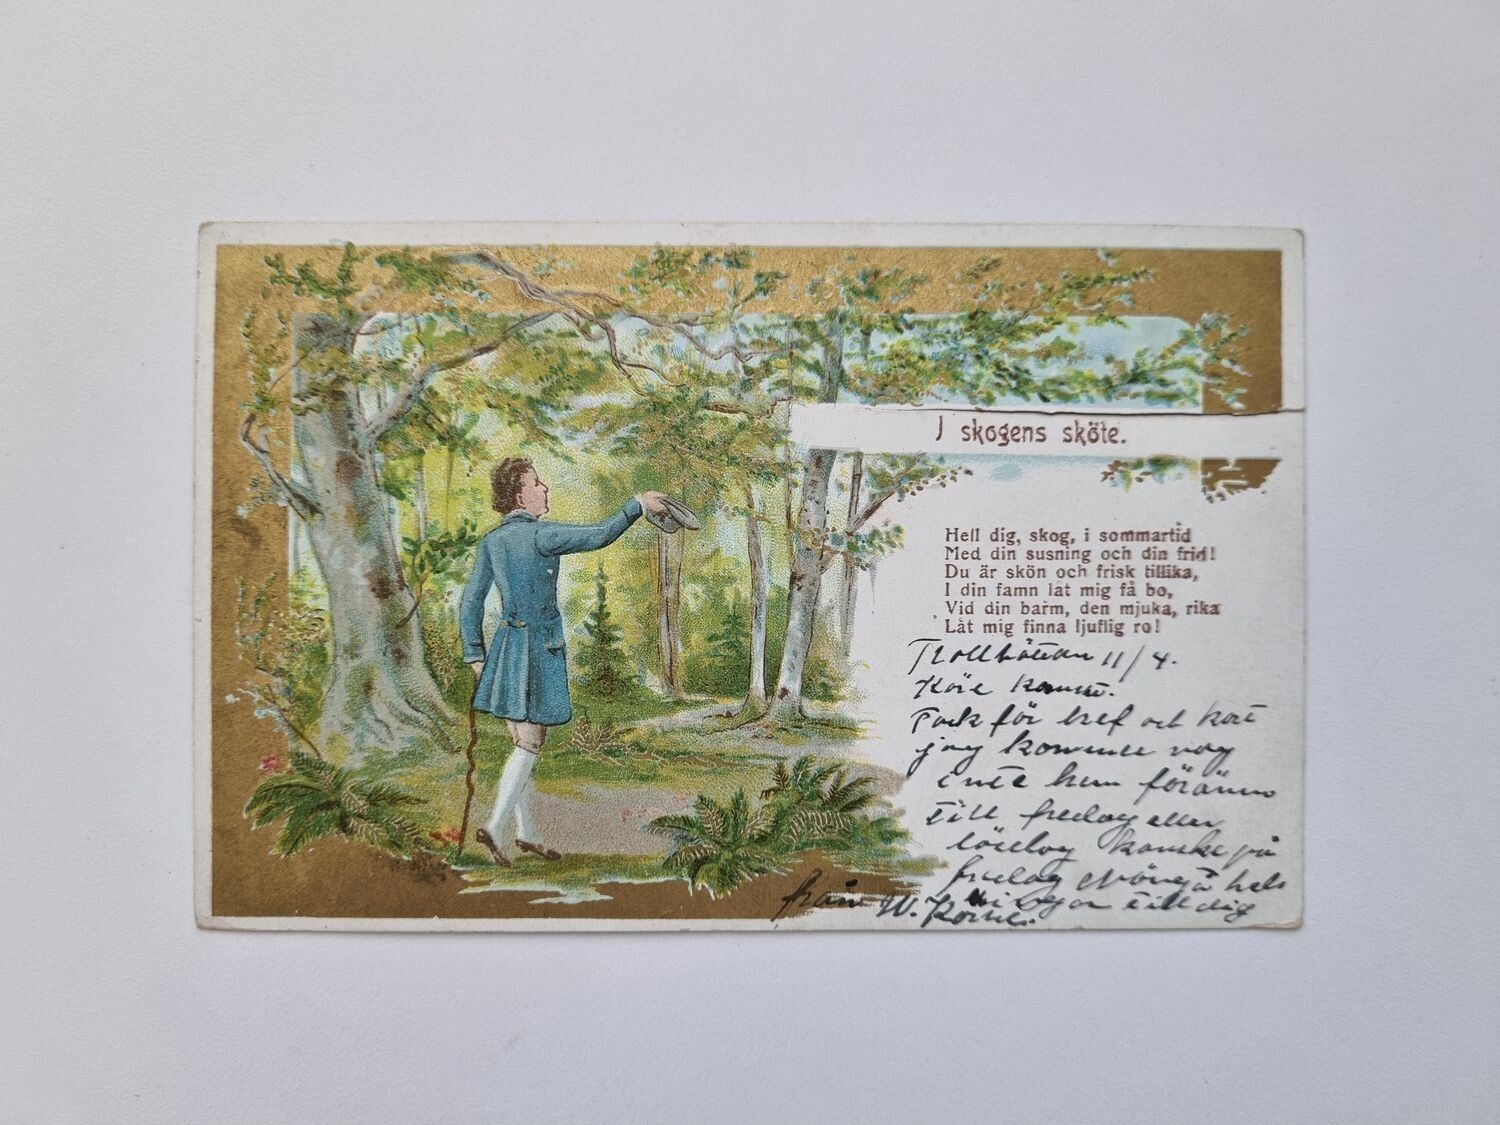 I skogens sköte.
Hell dig, skog, i sommartid
Med din susning och din frid!
Du är skön och frisk tillika,
I din famn låt mig få bo,
Vid din barm, den mjuka, rika
Låt mig finna ljuflig ro!
Trollhättan 11/4.
Käre
Tack för bref och kort
jag kommer nog
inte hem förännn
till fredag eller
lördag kanske på
fredag hels
till dig
från W.